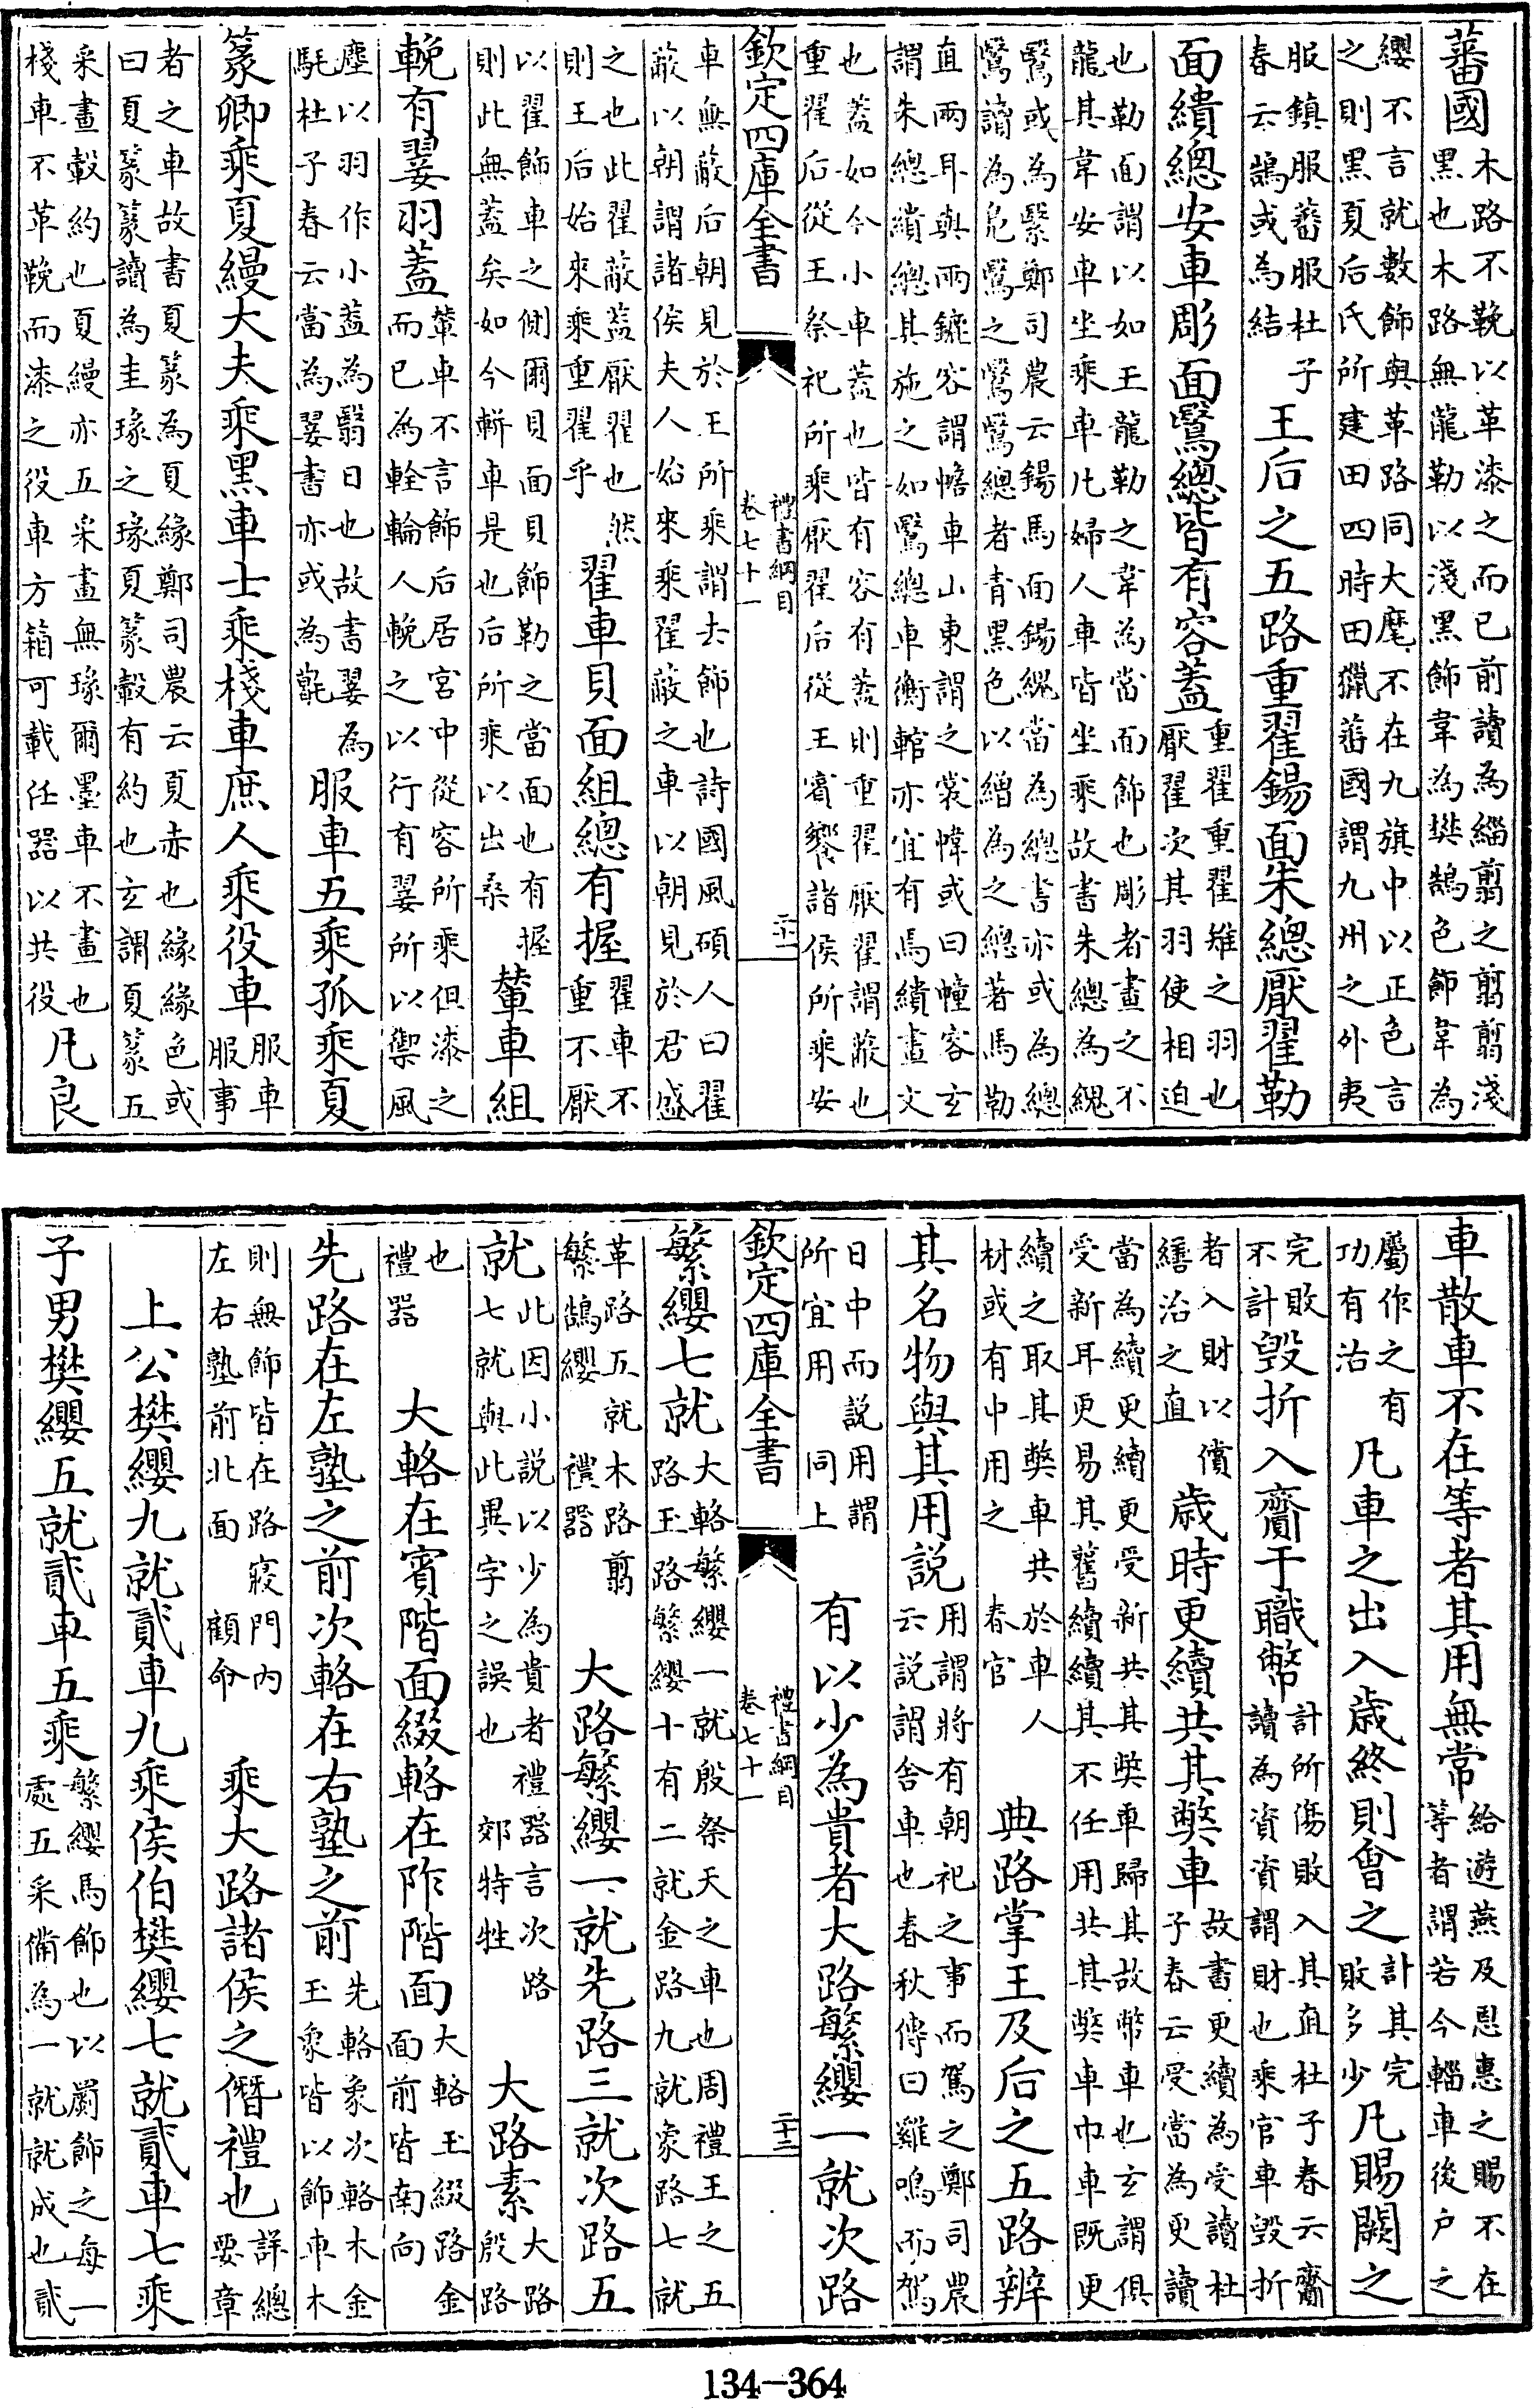 蕃國木路不鞔以革漆之而已前讀為緇翦之翦翦淺黑也木路無龍勒以淺黑飾韋為樊鵠色飾韋為
纓不言就數飾與革路同大麾不在九旗中以正色言之則黑夏后氏所建田四時田獵蕃國謂九州之外夷
服鎮服蕃服杜子春云鵠或為結王后之五路重翟鍚面朱總厭翟勒
面繢總安車彫面鷖總皆有容蓋重翟重翟雉之羽也厭翟次其羽使相迫
也勒面謂以如王龍勒之韋為當面飾也彫者畫之不龍其韋安車坐乘車凡婦人車皆坐乘故書朱總為
鷖或為繄鄭司農云鍚馬面鍚當為總書亦或為總鷖讀為鳧鷖之鷖鷖總者青黑色以繒為之總著馬勒
直兩耳與兩鑣容謂幨車山東謂之裳幃或曰幢容玄謂朱總繢總其施之如鷖總車衡輨亦宜有焉繢畫文
也蓋如今小車蓋也皆有容有蓋則重翟厭翟謂蔽也重翟后從王祭祀所乘厭翟后從王賓饗諸侯所乘安
欽定四庫全書
禮書綱目
卷七十一
車無蔽后朝見於王所乘謂去飾也詩國風碩人曰翟蔽以朝謂諸侯夫人始來乘翟蔽之車以朝見於君盛
之也此翟蔽蓋厭翟也然則王后始來乘重翟乎翟車貝面組總有握翟車不重不厭
以翟飾車之側爾貝面貝飾勒之當面也有握則此無蓋矣如今軿車是也后所乘以出桑輦車組
輓有翣羽蓋輦車不言飾后居宮中從容所乘但漆之而已為輇輪人輓之以行有翣所以禦風
塵以羽作小蓋為翳日也故書翣為駹杜子春云當為翣書亦或為服車五乘孤乘夏
篆卿乘夏縵大夫乘黑車士乘棧車庶人乘役車服車服事
者之車故書夏篆為夏緣鄭司農云夏赤也緣緣色或曰夏篆篆讀為圭瑑之瑑夏篆轂有約也玄謂夏篆五
采畫轂約也夏縵亦五采畫無瑑爾墨車不畫也棧車不革鞔而漆之役車方箱可載任器以共役凡良
車散車不在等者其用無常給遊燕及恩惠之賜不在等者謂若今輜車後戶之
屬作之有功有沽凡車之出入歲終則會之計其完敗多少凡賜闕之
完敗不計毀折入齎于職幣計所傷敗入其直杜子春云齎讀為資資謂財也乘官車毀折
者入財以償繕治之直歲時更續共其獘車故書更續為受讀杜子春云受當為更讀
當為續更續更受新共其獘車歸其故幣車也玄謂俱受新耳更易其舊續續其不任用共其獘車巾車既更
續之取其獘車共於車人材或有中用之春官典路掌王及后之五路辨
其名物與其用說用謂將有朝祀之事而駕之鄭司農云說謂舍車也春秋傳曰雞鳴而駕
日中而說用謂所宜用同上有以少為貴者大路繁纓一就次路
欽定四庫全書
禮書綱目
卷七十一
二十三
繁纓七就大輅繁纓一就殷祭天之車也周禮王之五路玉路繁纓十有二就金路九就象路七就
革路五就木路翦繁鵠纓禮器大路繁纓一就先路三就次路五
就此因小說以少為貴者禮器言次路七就與此異字之誤也郊特牲大路素大路殷路
也禮器大輅在賓階面綴輅在阼階面大輅玉綴路金面前皆南向
先路在左塾之前次輅在右塾之前先輅象次輅木金玉象皆以飾車木
則無飾皆在路寢門內左右塾前北面顧命乘大路諸侯之僭禮也詳總要章
上公樊纓九就貳車九乘侯伯樊纓七就貳車七乘
子男樊纓五就貳車五乘繁纓馬飾也以罽飾之每一處五采備為一就就成也貳
134-364